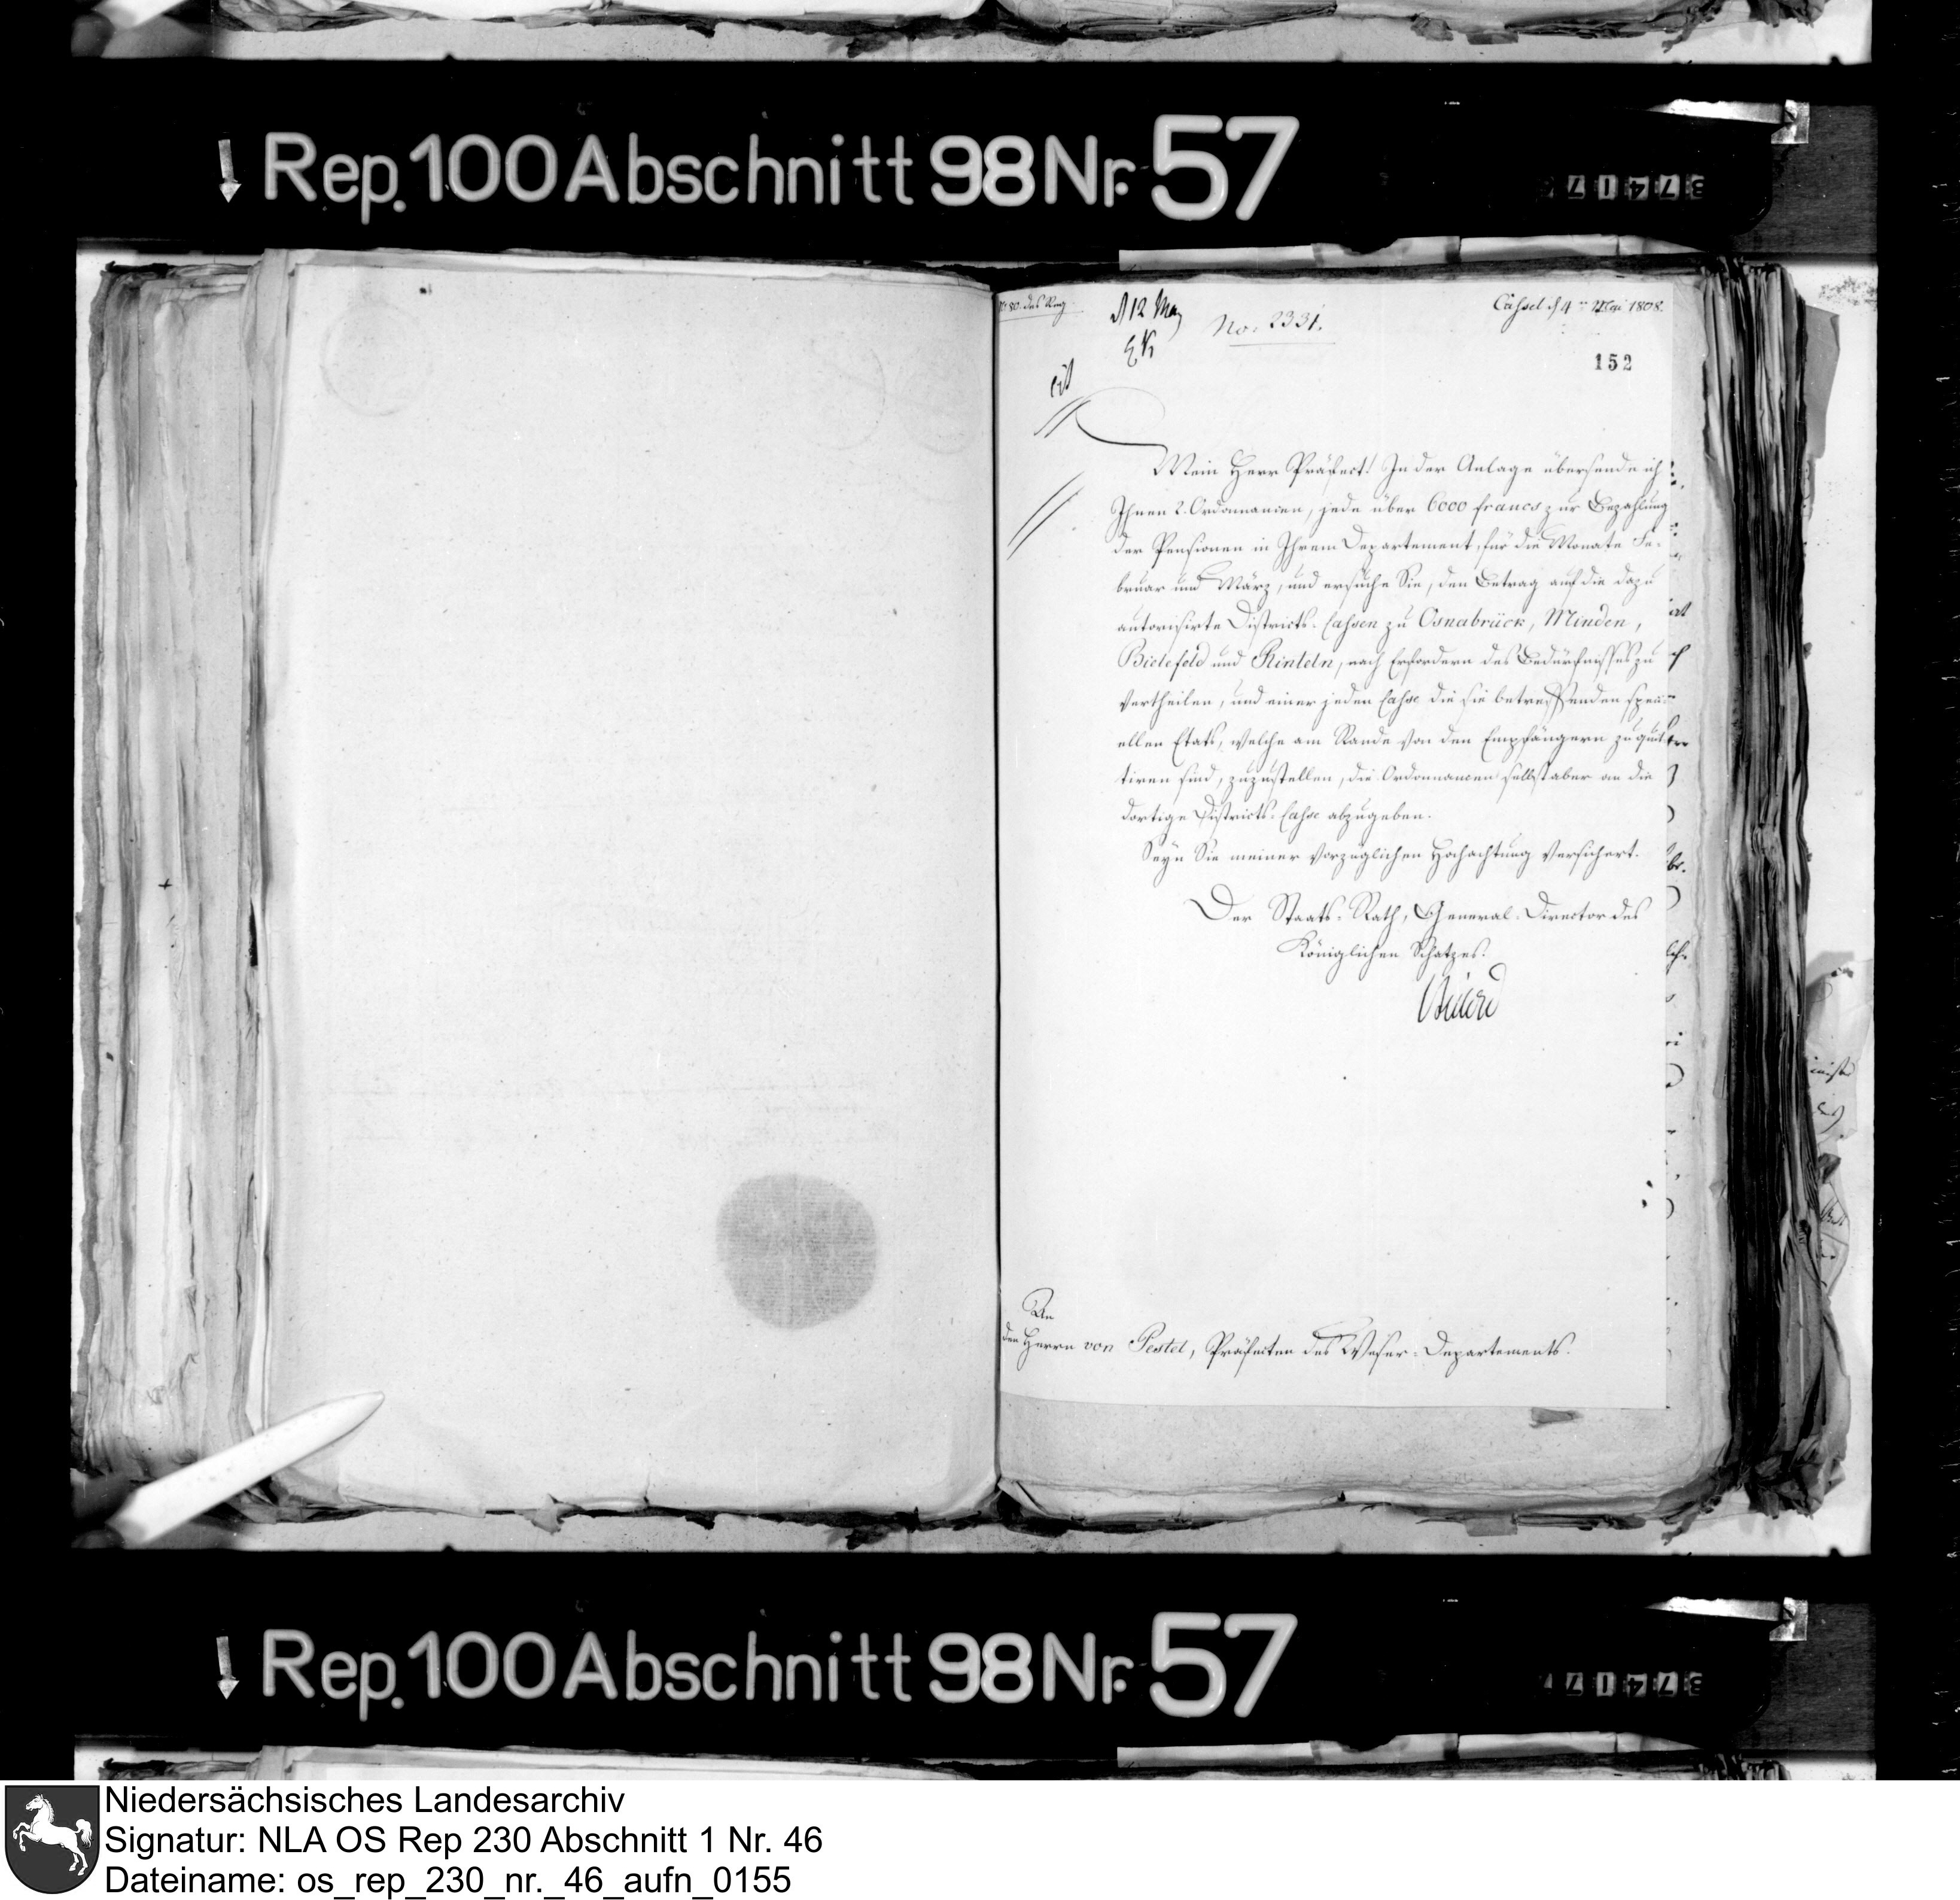 Rep. 100 Abschnitt 98 Nr. 57
No. 2331.
Cassel d 4ten Mai 1808.
152
12 May
Mein Herr Präfect! In der Anlage übersende ich
Ihnen 2. Ordonnancen, jede über 6000 francs zur Bezahlung
der Pensionen in Ihrem Departement, für die Monate Fe-
bruar und März, und ersuche Sie, den Betrag auf die dazu
autorisirte Districts-Cassen zu Osnabrück, Minden,
Bielefeld und Rinteln, nach Erfordern des Bedürfnisses zu
vertheilen, und einer jeden Casse die sie betreffenden speci-
ellen Etats, welche am Rande von den Empfängern zu quit-
tiren sind, zuzustellen, die Ordonnancen selbst aber an die
dortige Districts-Casse abzugeben.
Seyn Sie meiner vorzüglichen Hochachtung versichert.
Der Staats-Rath, General-Director des
Königlichen Schatzes.
An
den Herrn von Pestel, Präfecten des Weser-Departements.
Rep. 100 Abschnitt 98 Nr. 57
Niedersächsisches Landesarchiv
Signatur: NLA OS Rep 230 Abschnitt 1 Nr. 46
Dateiname: os_rep_230_nr._46_aufn_0155